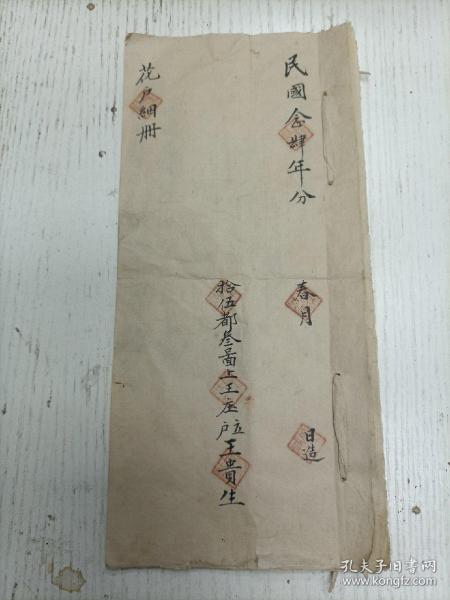 民國念肆年分
春月
日造
拾伍都叁啚上王庄立户王貴生
花户細冊
孔夫子旧书网
www.kongfz.com